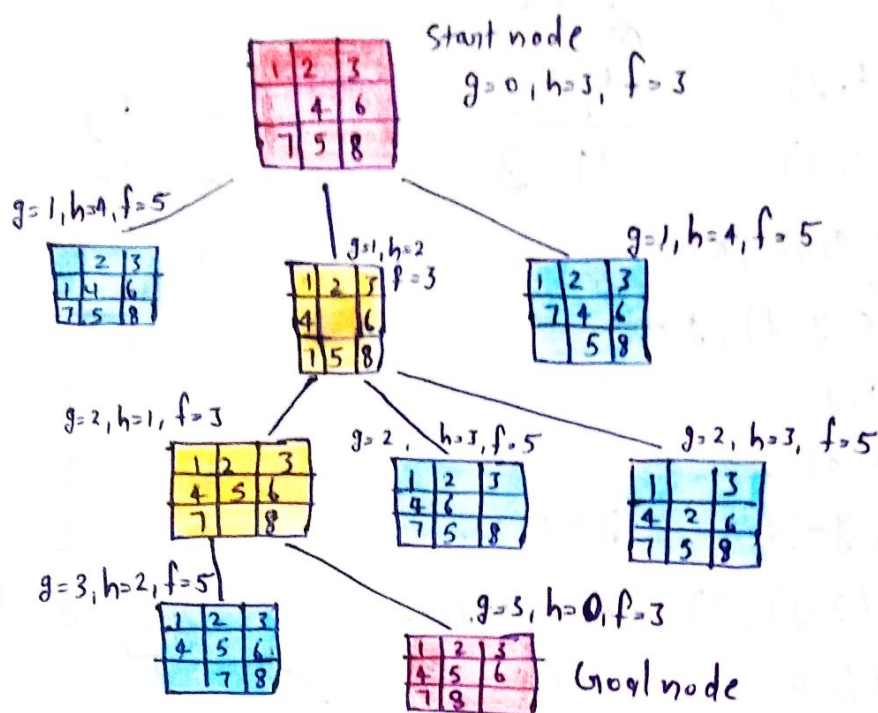 Start node
g=0, h=3, f=3
1 2 3
4 6
7 5 8
g=1, h=4, f=5
2 3
1 4 6
7 5 8
g=1, h=2
f=3
1 2 3
4 6
7 5 8
g=1, h=4, f=5
1 2 3
7 4 6
5 8
g=2, h=1, f=3
1 2 3
4 5 6
7 8
g=2, h=3, f=5
1 2 3
4 6
7 5 8
g=2, h=3, f=5
1 3
4 2 6
7 5 8
g=3, h=2, f=5
1 2 3
4 5 6
7 8
g=3, h=0, f=3
1 2 3
4 5 6
7 8
Goal node